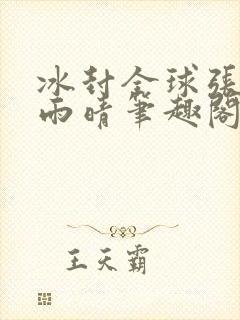 冰封全球張
雨晴筆趣閣
王天霸